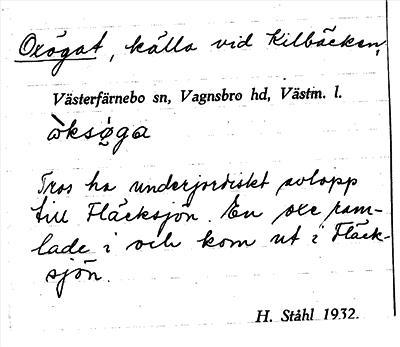 Oxögat, källa vid Kilbäcken,
Västerfärnebo sn, Vagnsbro hd, Västm. l.
òksø̜ga
Tros ha underjordiskt avlopp
till Fläcksjön. En oxe ram-
lade i och kom ut i Fläck-
sjön.
H. Ståhl 1932.